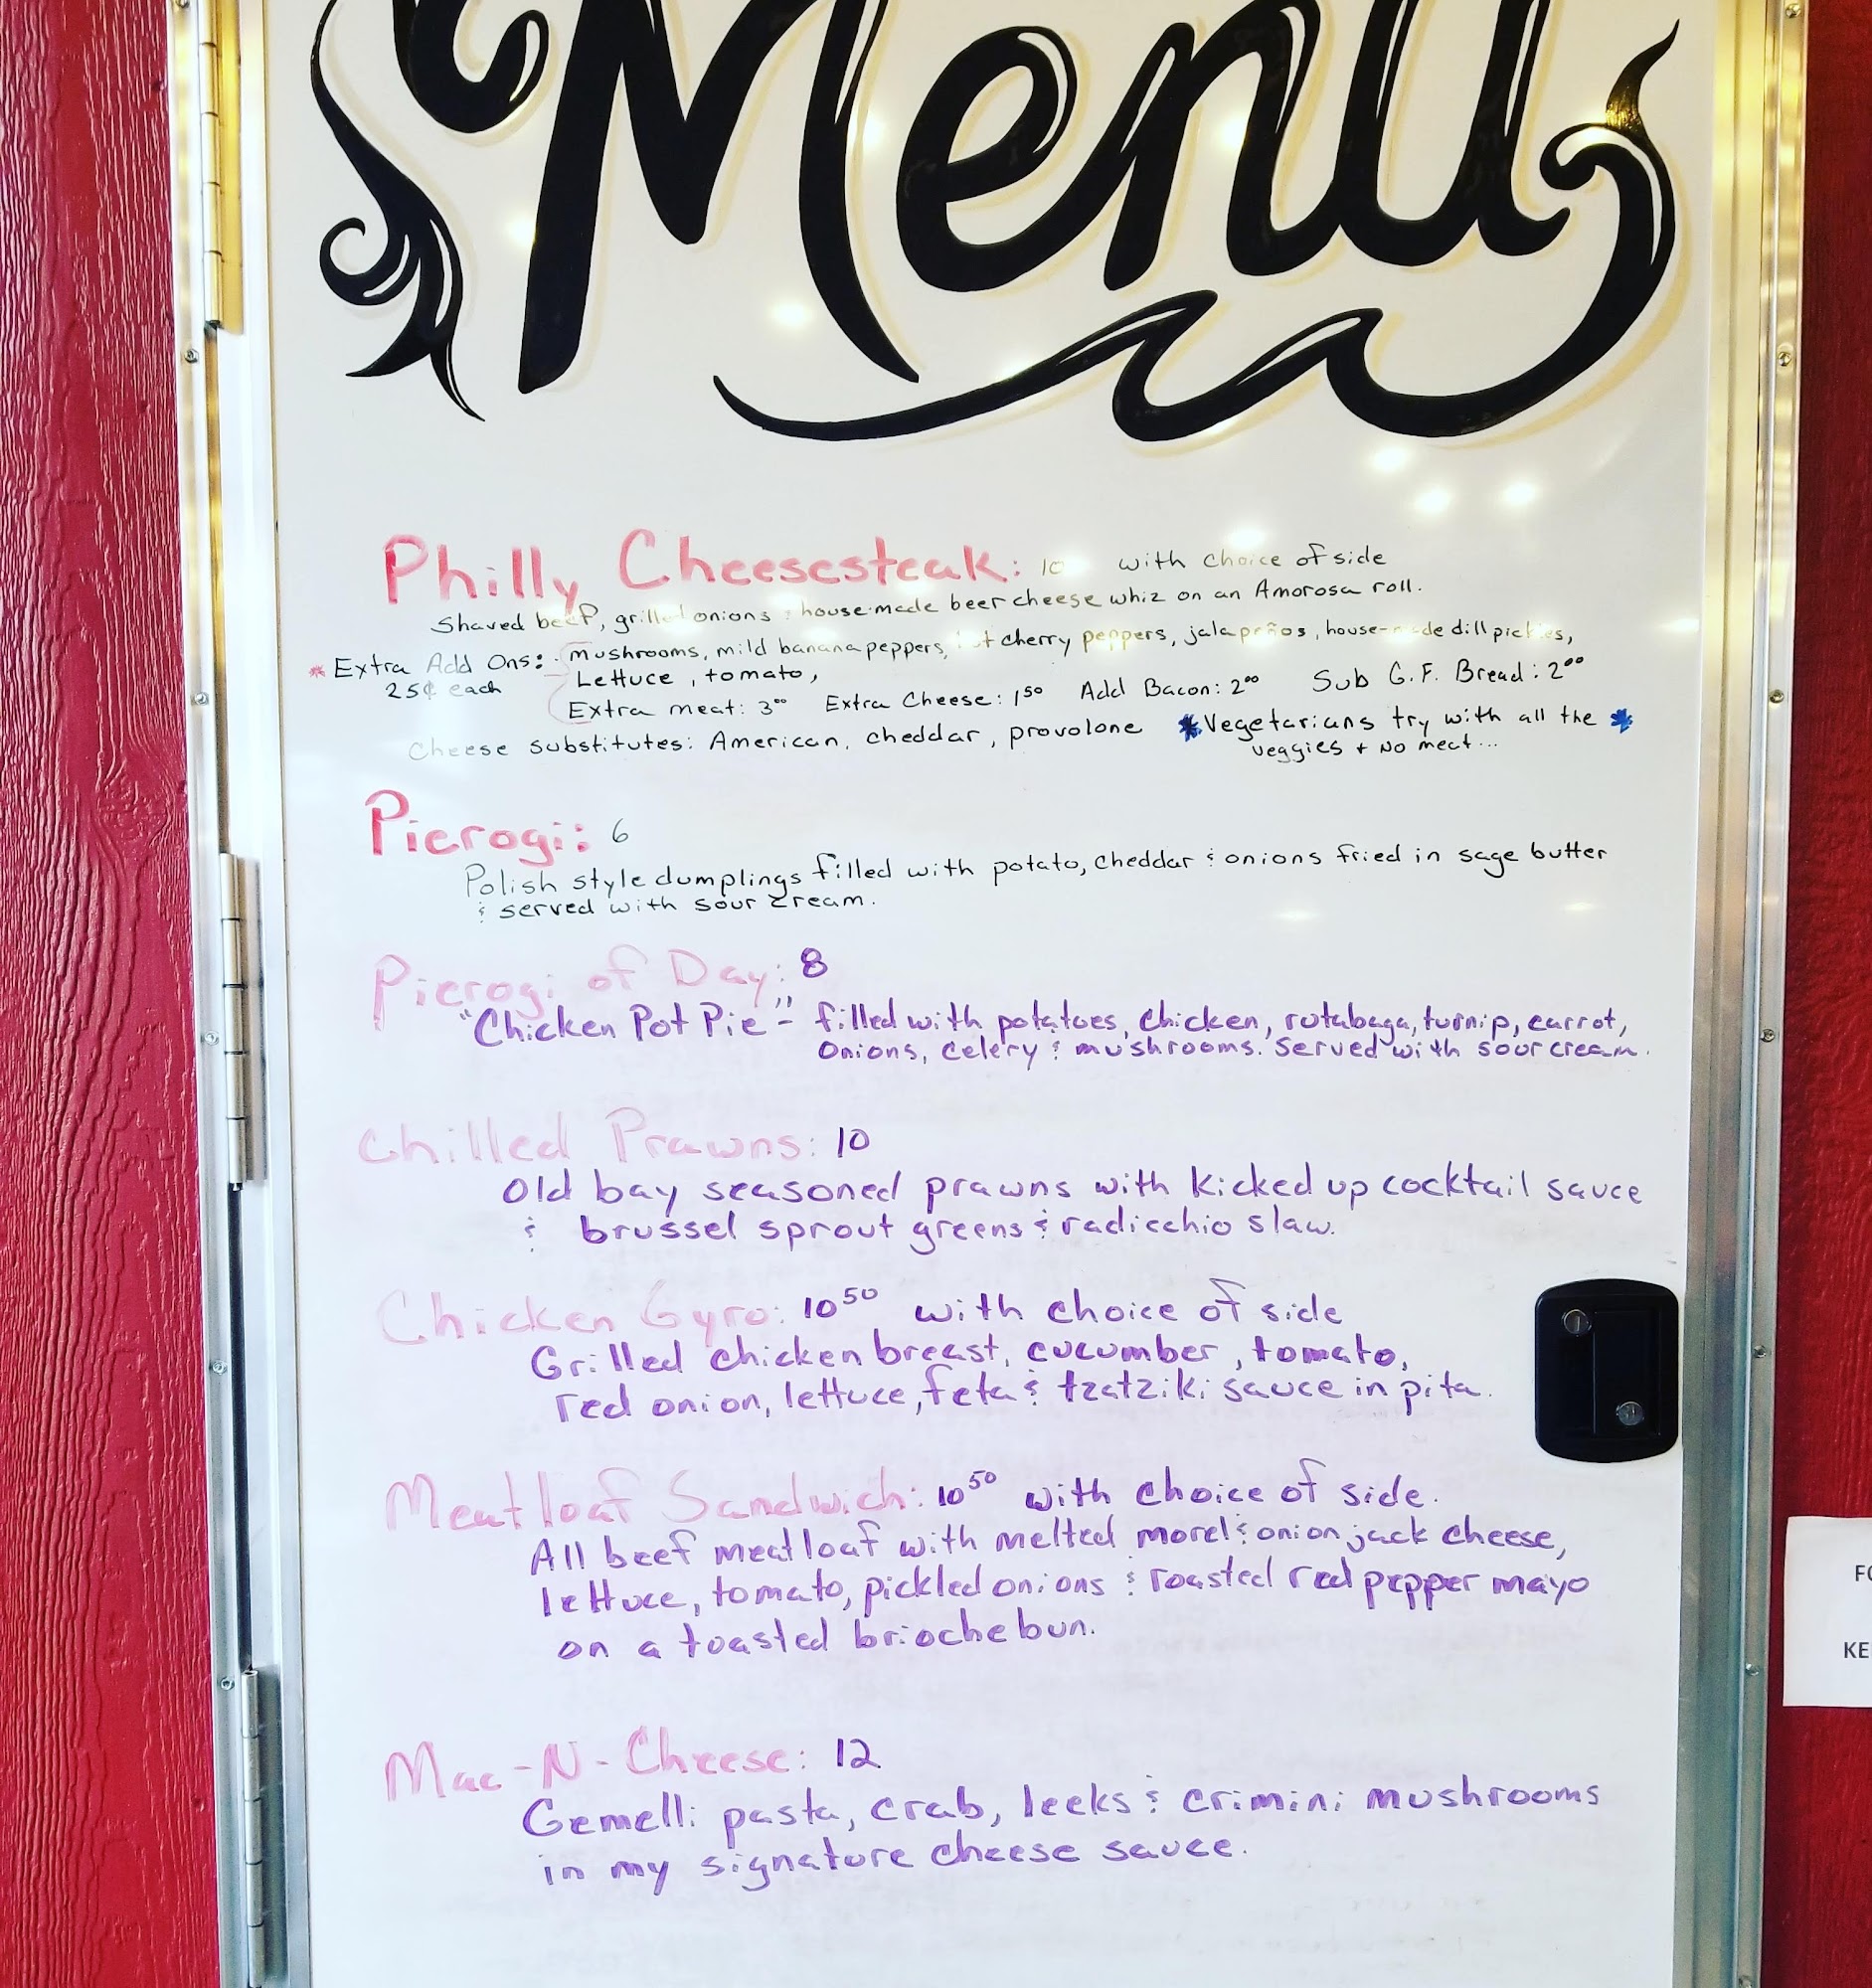 Menu
Philly Cheesesteak: 10 with choice of side
Shaved beef, grilled onions & house-made beer cheese whiz on an Amorosa roll.
* Extra Add Ons: mushrooms, mild banana peppers, hot cherry peppers, jalapeños, house-made dill pickles,
25¢ each Lettuce, tomato,
Extra meat: 3⁰⁰ Extra Cheese: 1⁵⁰ Add Bacon: 2⁰⁰ Sub G.F. Bread: 2⁰⁰
Cheese substitutes: American, cheddar, provolone *Vegetarians try with all the *
veggies + No meat...
Pierogi: 6
Polish style dumplings filled with potato, cheddar & onions fried in sage butter
& served with sour cream.
Pierogi of Day: 8
"Chicken Pot Pie" - filled with potatoes, chicken, rutabaga, turnip, carrot,
onions, celery & mushrooms. Served with sour cream.
Chilled Prawns: 10
Old bay seasoned prawns with kicked up cocktail sauce
& brussel sprout greens & radicchio slaw.
Chicken Gyro: 10⁵⁰ with choice of side
Grilled chicken breast, cucumber, tomato,
red onion, lettuce, feta & tzatziki sauce in pita.
Meatloaf Sandwich: 10⁵⁰ with choice of side.
All beef meatloaf with melted morel & onion jack cheese,
lettuce, tomato, pickled onions & roasted red pepper mayo
on a toasted brioche bun.
Mac-N-Cheese: 12
Gemelli pasta, crab, leeks & crimini mushrooms
in my signature cheese sauce.